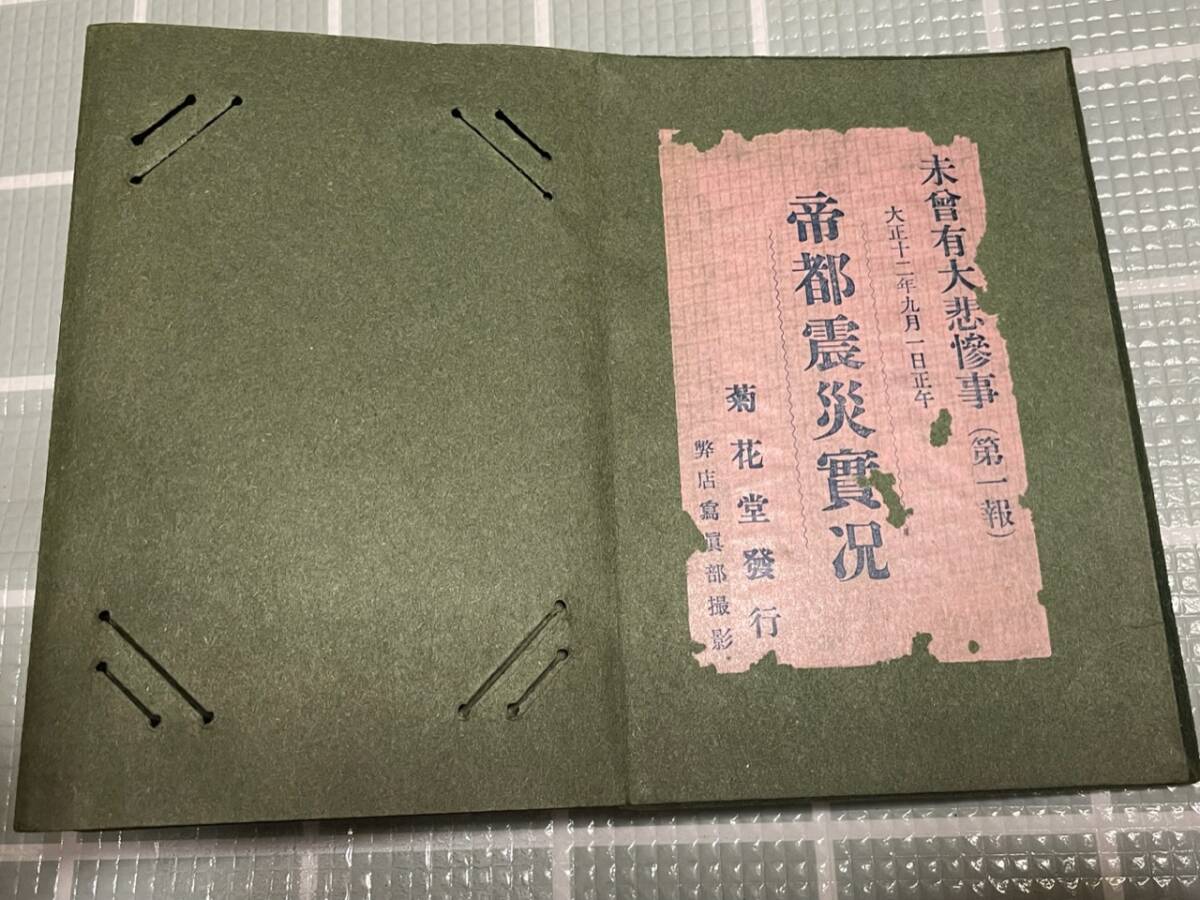 未曾有大悲慘事(第一報)
大正十二年九月一日正午
帝都震災實况
菊花堂發行
弊店寫眞部撮影